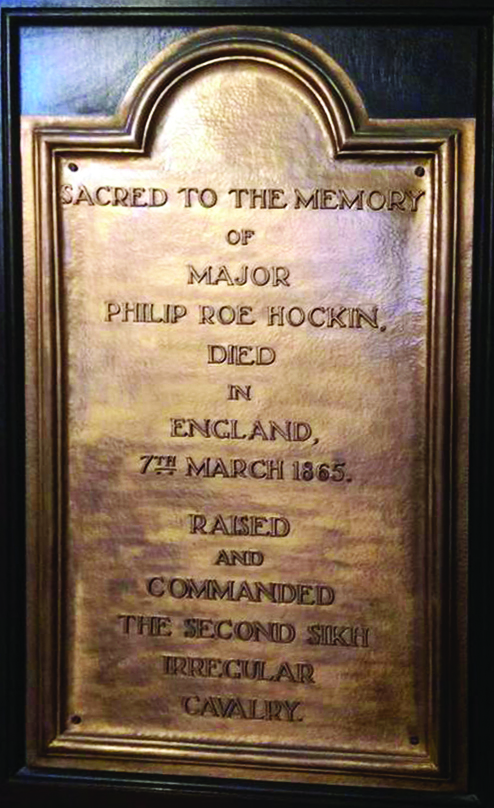 SACRED TO THE MEMORY
OF
MAJOR
PHILIP ROE HOCKIN,
DIED
IN
ENGLAND,
7TH MARCH 1865.
RAISED
AND
COMMANDED
THE SECOND SIKH
IRREGULAR
CAVALRY.